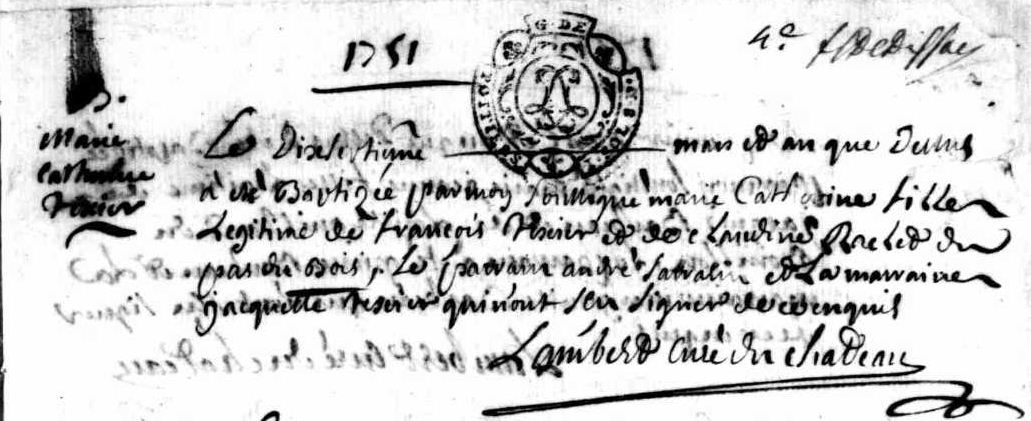 1751
4e
G. DE
Marie
Catherine
Texier
Le Dixseptieme mars et an que Dessus
a été Baptizée par moy soussigné marie Catherine fille
Legitime de francois Texier et de Claudine du
pas du Bois, Le parain andré et La maraine
jacquette Texier qui n'ont seu signer de ce enquis
Lambert Curé du chadeau